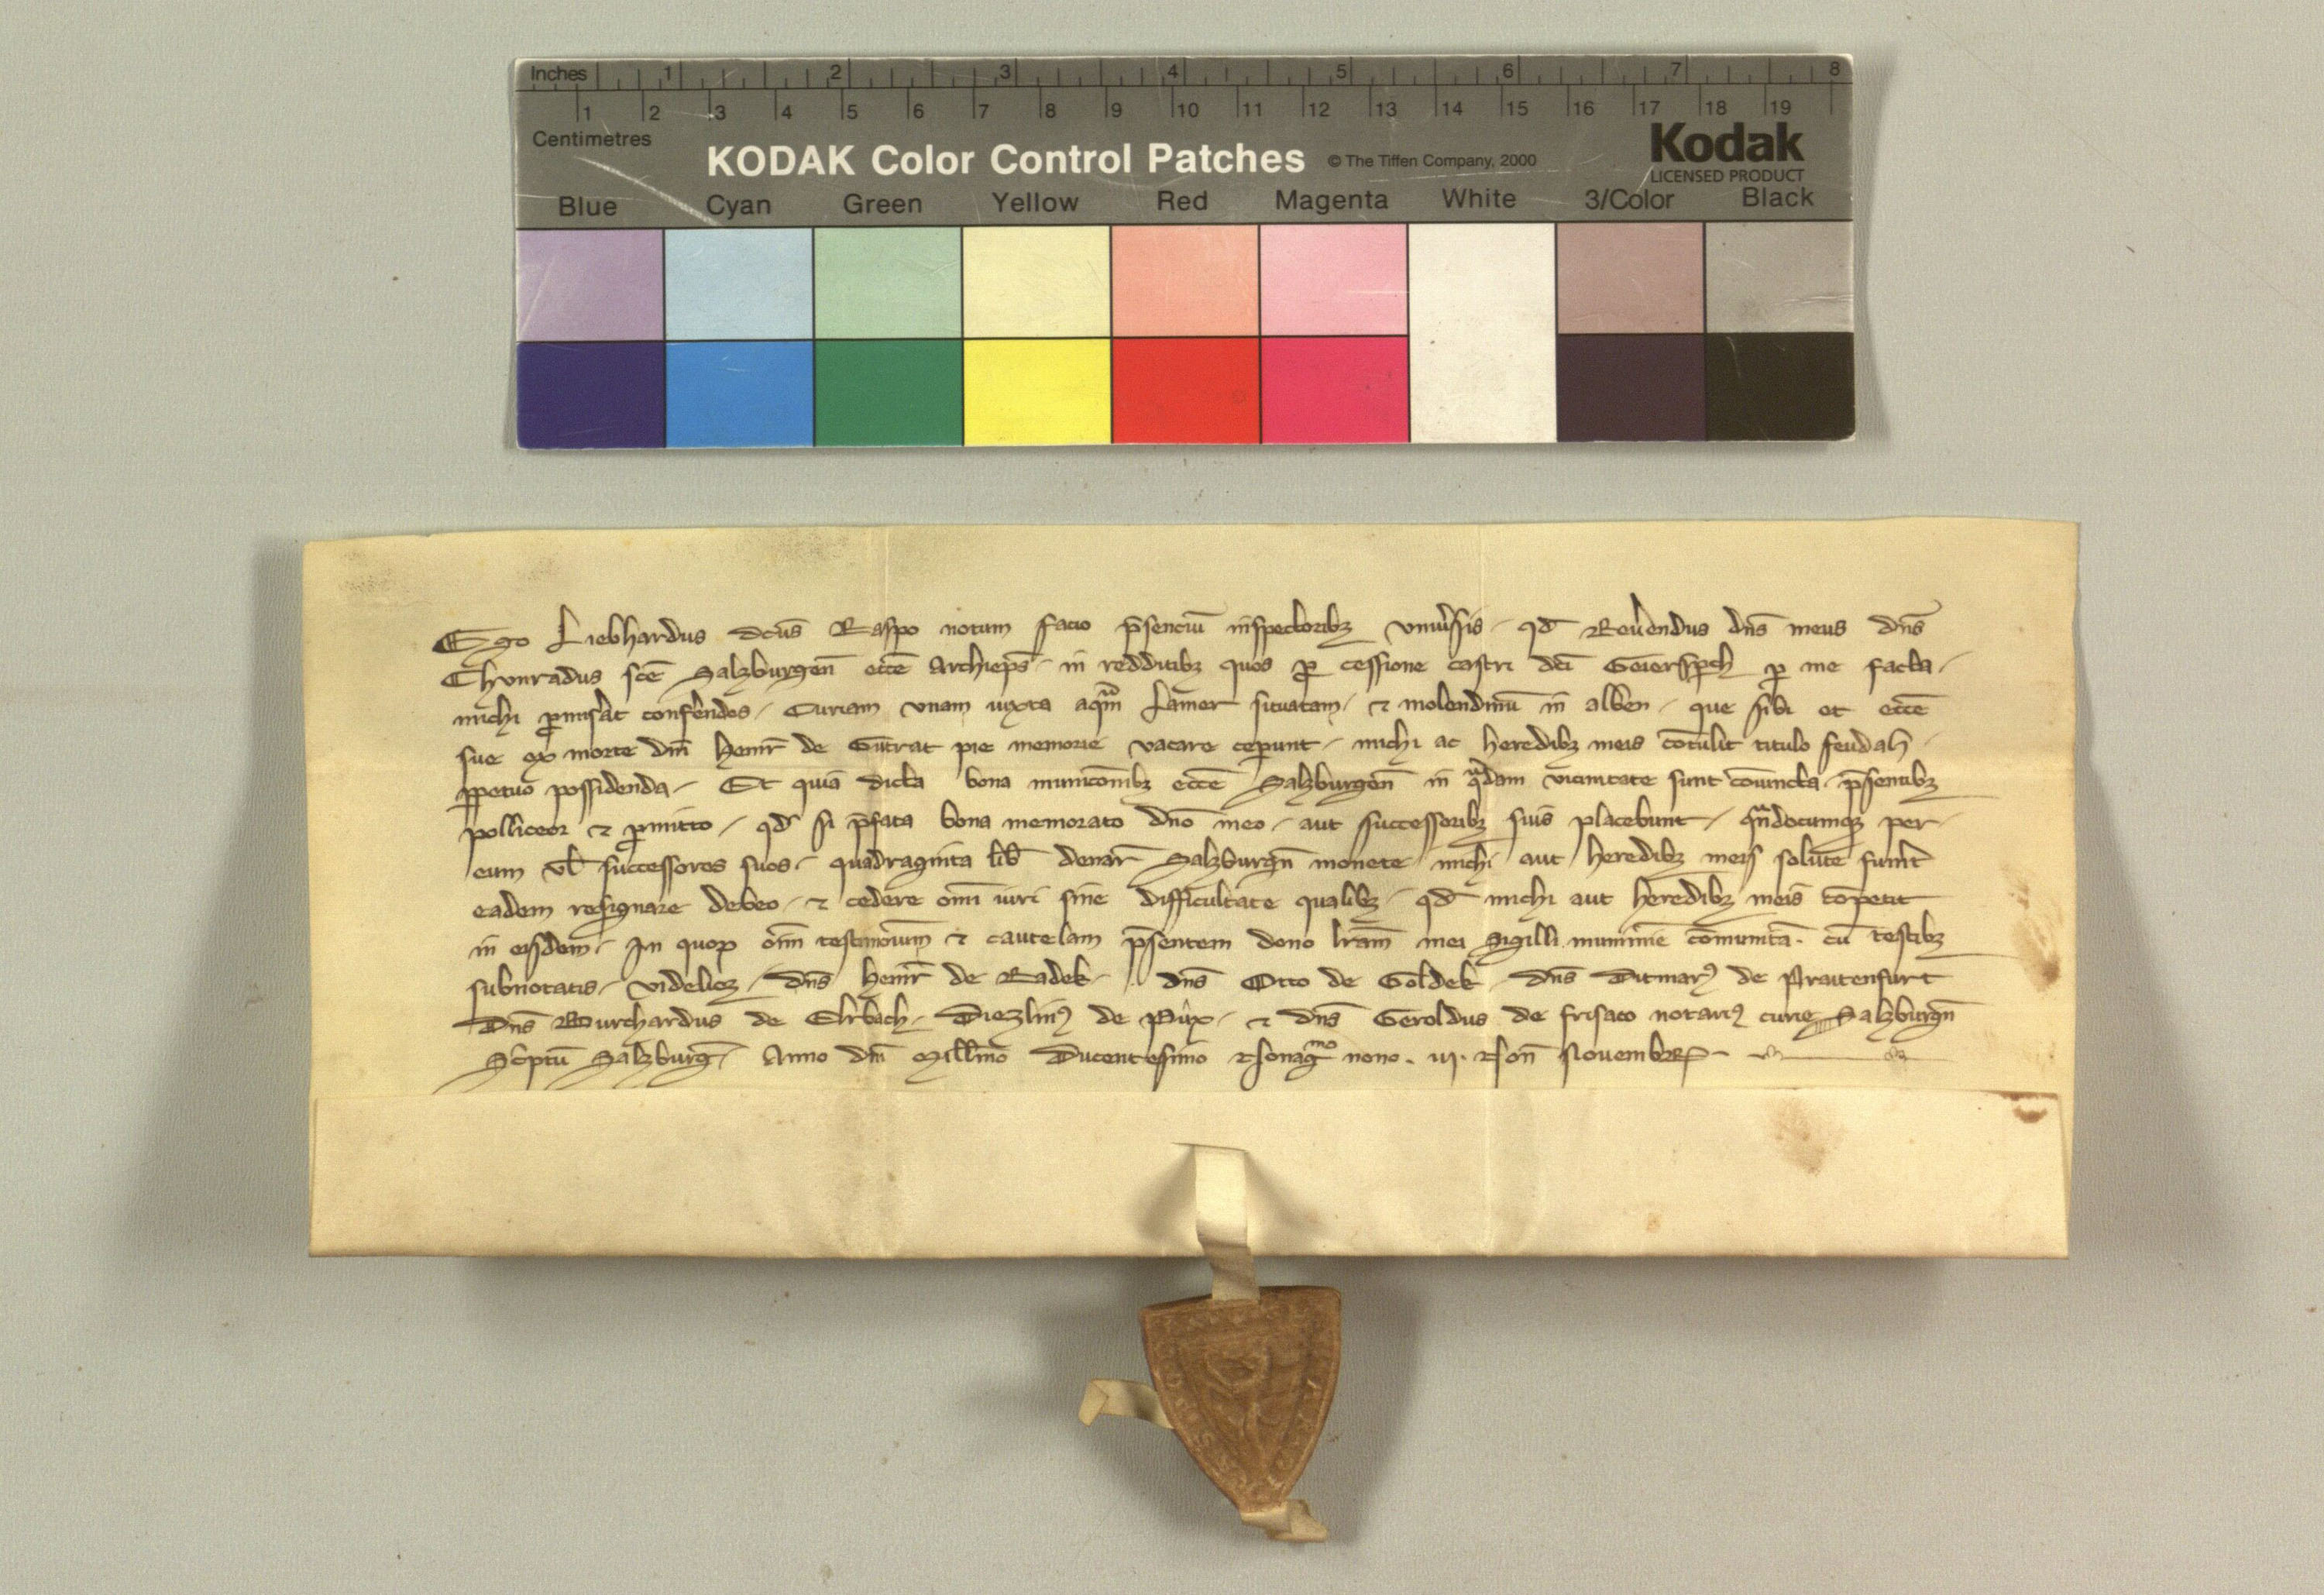 Inches 1 2 3 4 5 6 7 8
1 2 3 4 5 6 7 8 9 10 11 12 13 14 15 16 17 18 19
Centimetres
KODAK Color Control Patches © The Tiffen Company, 2000 Kodak
LICENSED PRODUCT
Blue Cyan Green Yellow Red Magenta White 3/Color Black
Ego Liebhardus dcūs Raspo notum facio p̄senciū inspectoribꝫ vniu̾sis · qd̄ Reue̾ndus dn̄s meus dn̄s
Chunradus sc̄e Salzburgen̄ ecc̄e Archiep̄s · in redditibꝫ quos ꝓ cessione castri dc̄i Geiersp̄ch ꝑ me facta ·
michi ꝓmise̾at confe̾ndos · Curiam vnam iuxta aqᵃm Lamer situatam · ⁊ molendinū in alben · que sibi et ecc̄e
sue ex morte dn̄i Heinr̄ de Gutrat pie memorie vacare ceperunt · michi ac heredibꝫ meis cōtulit titulo feudali ·
ꝑpetuo possidenda · Et quia dicta bona municōnibꝫ ecc̄e Salzburgen̄ in qᵃdam vicinitate sunt cōiuncta · p̄sentibꝫ
polliceor ⁊ ꝓmitto · qd̄ si p̄fata bona memorato dn̄o meo · aut successoribꝫ suis placebunt · qᵃndocumqꝫ per
eum vl̄ successores suos · quadraginta lib̄ denar̄ Salzburgn̄ monete michi aut heredibꝫ meis solute fue̾int
eadem resignare debeo · ⁊ cedere om̄i iuri sine difficultate qualibꝫ · qd̄ michi aut heredibꝫ meis cōpetit
in eisdem · In quoꝝ om̄i testimoniū ⁊ cautelam p̄sentem dono lr̄am mei sigilli munimīe cōmunitā · cū testibꝫ
subnotatis · videlicꝫ · dn̄s Heinr̄ de Radek · dn̄s Otto de Goldek · dn̄s Ditmarꝰ de Praitenfurt
Dn̄s Burchardus de Elrbach · Diezlinꝰ de Pux · ⁊ dn̄s Geroldus de frisaco notariꝰ curie Salzburgn̄
Sc̾ptū Salzburḡ Anno dn̄i Millīmo Ducentesimo Nonagᵐᵒ nono · iij · Non̄ Nouembꝝ